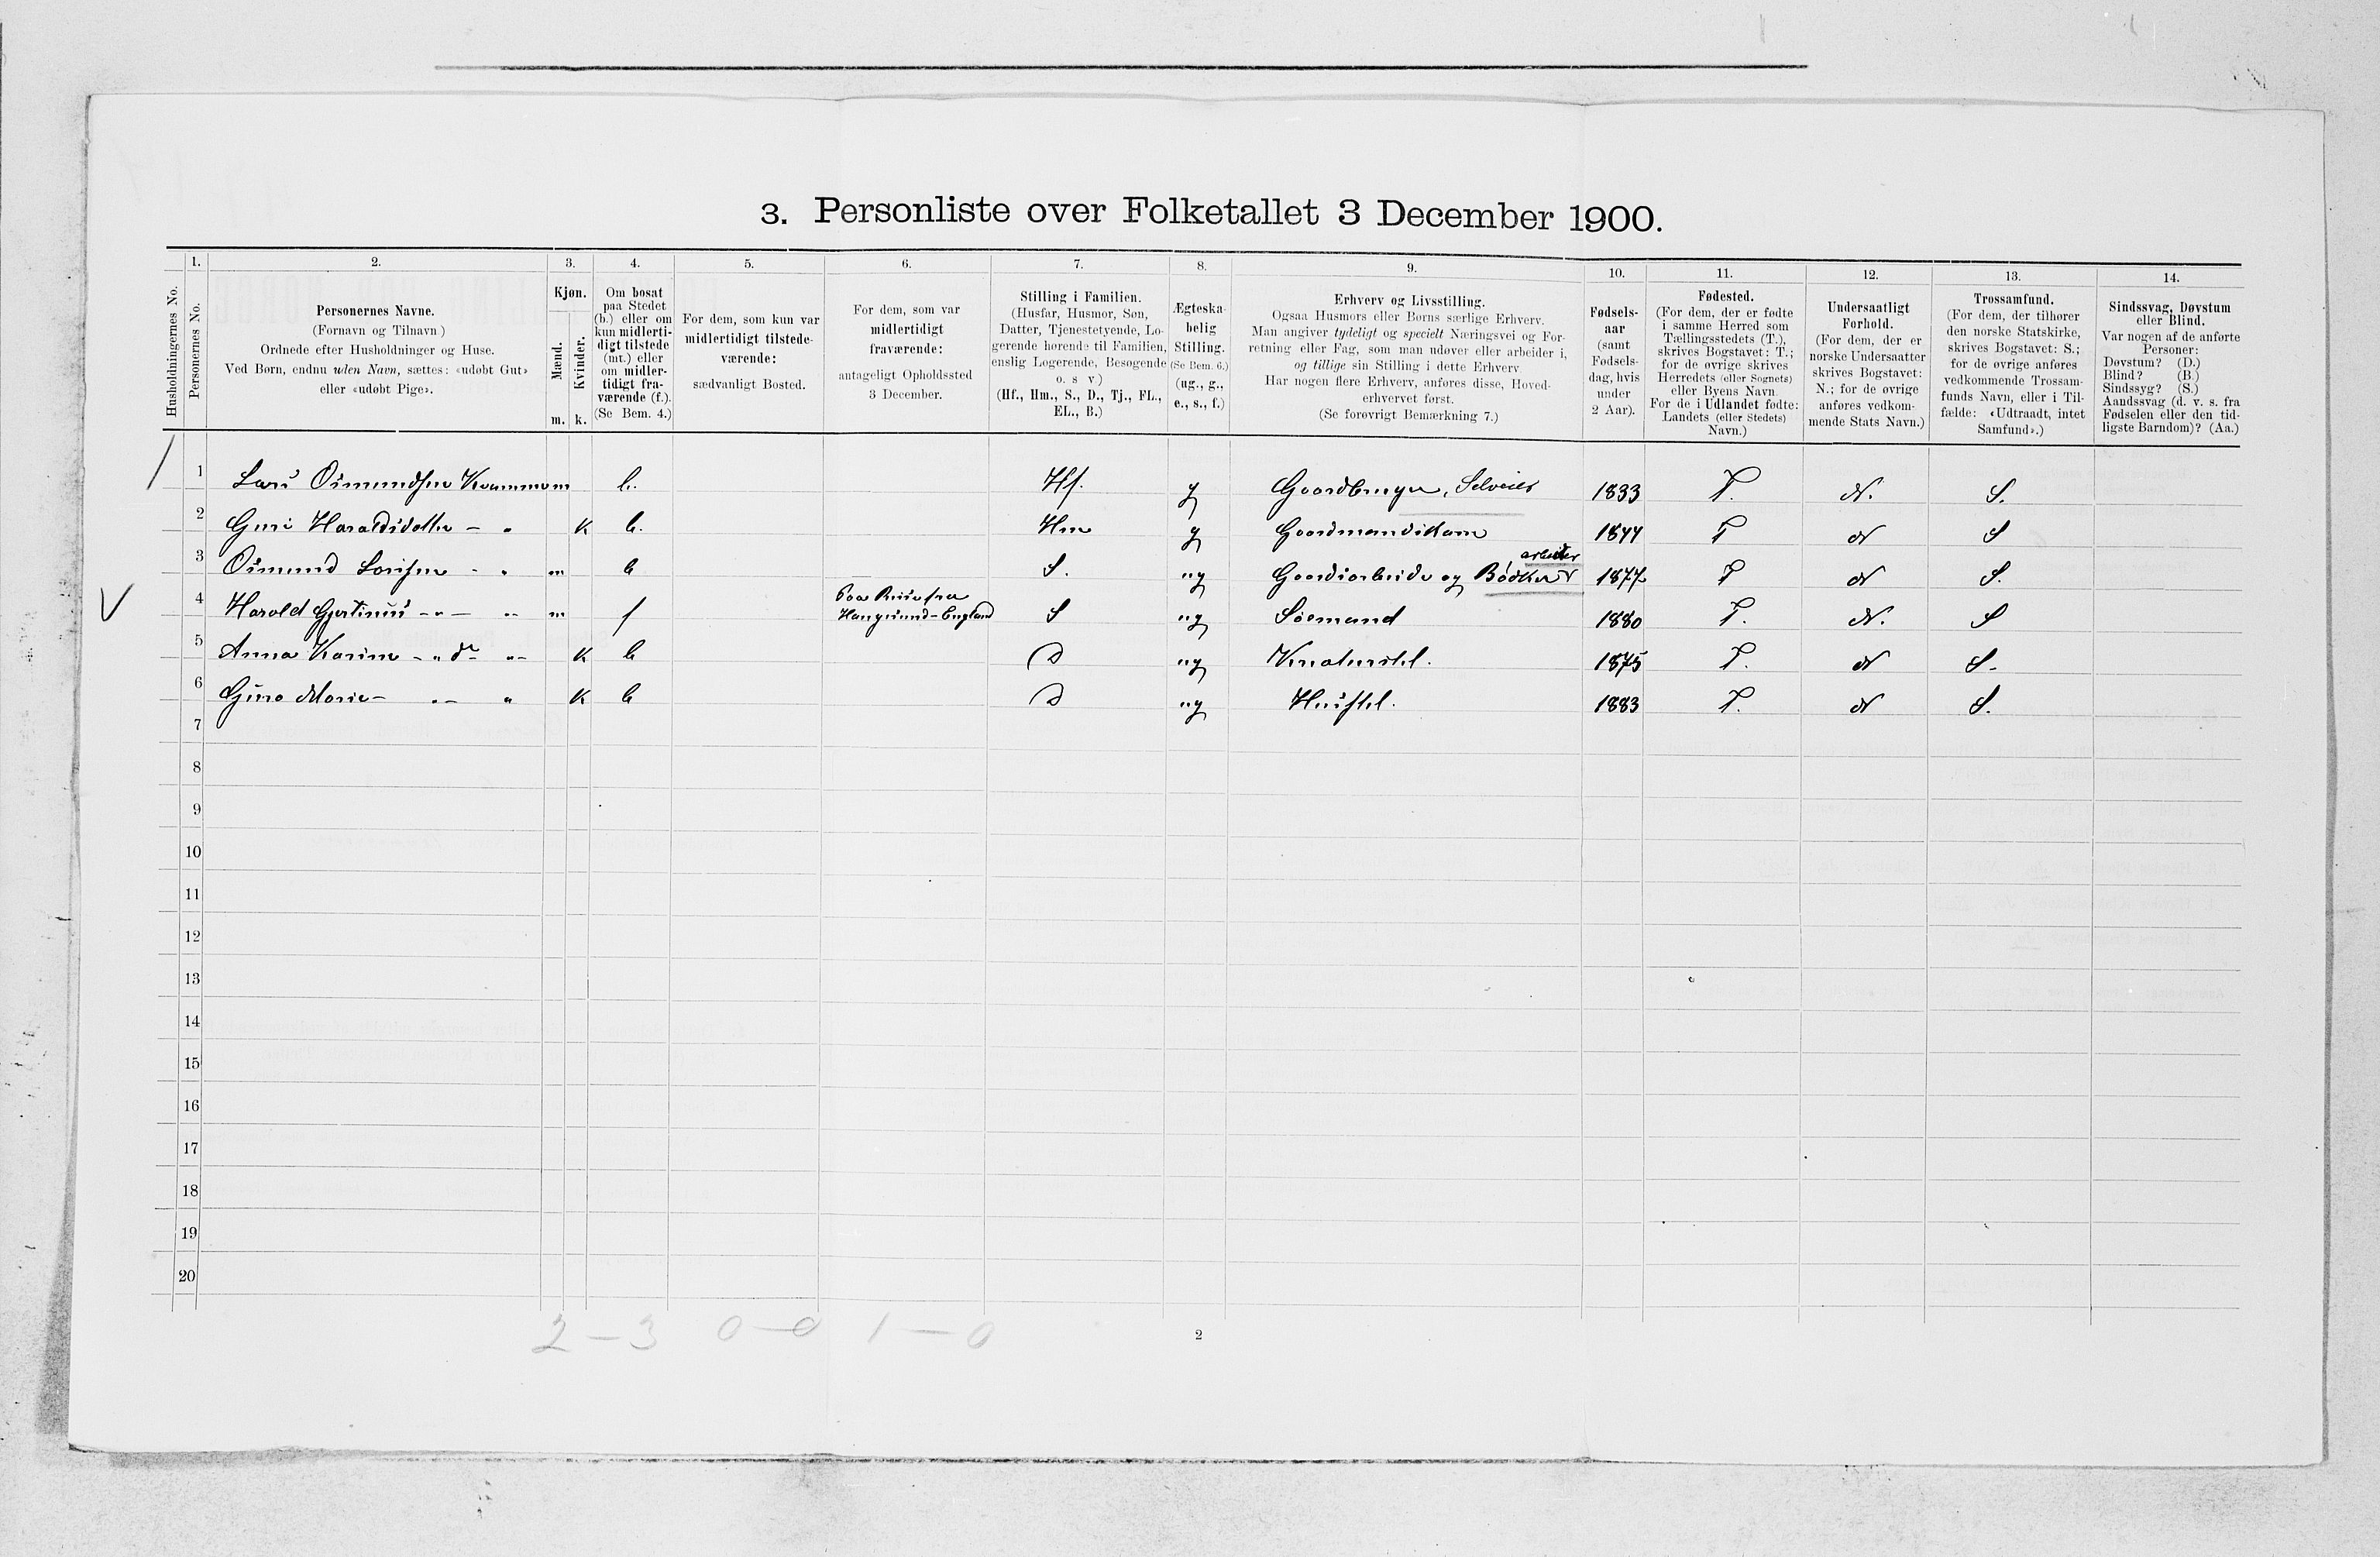 3. Personliste over Folketallet 3 December 1900.
1. 2. 3. 4. 5. 6. 7. 8. 9. 10. 11. 12. 13. 14.
Husholdningernes No.
Personernes No.
Personernes Navne.
(Fornavn og Tilnavn)
Ordnede efter Husholdninger og Huse.
Ved Børn, endnu uden Navn, sættes: «udøbt Gut»
eller «udøbt Pige».
Kjøn.
Mænd.
Kvinder.
m. k.
Om bosat
paa Stedet
(b.) eller om
kun midlerti-
digt tilstede
(mt.) eller
om midler-
tidigt fra-
værende (f.).
(Se Bem. 4.)
For dem, som kun var
midlertidigt tilstede-
værende:
sædvanligt Bosted.
For dem, som var
midlertidigt
fraværende:
antageligt Opholdssted
3 December.
Stilling i Familien.
(Husfar, Husmor, Søn,
Datter, Tjenestetyende, Lo-
gerende hørende til Familien,
enslig Logerende, Besøgende
o. s v)
(Hf., Hm., S., D., Tj., FL.,
EL., B.)
Ægteska-
belig
Stilling.
(Se Bem. 6.)
(ug., g.,
e., s., f.)
Erhverv og Livsstilling.
Ogsaa Husmors eller Børns særlige Erhverv.
Man angiver tydeligt og specielt Næringsvei og For-
retning eller Fag, som man udøver eller arbeider i,
og tillige sin Stilling i dette Erhverv.
Har nogen flere Erhverv, anføres disse, Hoved-
erhvervet først.
(Se forøvrigt Bemærkning 7.)
Fødsels-
aar
(samt
Fødsels-
dag, hvis
under
2 Aar).
Fødested.
(For dem, der er fødte
i samme Herred som
Tællingsstedets (T.),
skrives Bogstavet: T.;
for de øvrige skrives
Herredets (eller Sognets)
eller Byens Navn.
For de i Udlandet fødte:
Landets (eller Stedets)
Navn.)
Undersaatligt
Forhold.
(For dem, der er
norske Undersaatter
skrives Bogstavet:
N.; for de øvrige
anføres vedkom-
mende Stats Navn.)
Trossamfund.
(For dem, der tilhører
den norske Statskirke,
skrives Bogstavet: S.;
for de øvrige anføres
vedkommende Trossam-
funds Navn, eller i Til-
fælde: «Udtraadt, intet
Samfund».)
Sindssvag, Døvstum
eller Blind.
Var nogen af de anførte
Personer:
Døvstum? (D.)
Blind? (B.)
Sindssyg? (S.)
Aandssvag (d. v. s. fra
Fødselen eller den tid-
ligste Barndom)? (Aa.)
1 Lars Osmundsen Kvammen m b. Hf. g Gaardbruger, Selveier 1833 T. N. S.
2 Guri Haraldsdatter – " k b. Hm g Gaardmandskone 1844 T N S
arbeider
3 Osmund Larssen - " m b S. ug Gaardsarbeide og Bødker 1877 T N S.
Paa Reise fra
4 Harald Gjertinus -"- "- m f Haugesund-England S ug Sømand 1880 T. N. S
5 Anna Karine -"dr "- k b D ug Kreaturstel. 1875 T. N S.
6 Gura Marie - "- " k b D ug Husstel. 1883 T. N S.
7
8
9
10
11
12
13
14
15
16
17
18
19
20
2–3 0–0 1–0
2